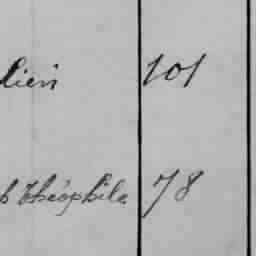 lien 101
h Théophile 78